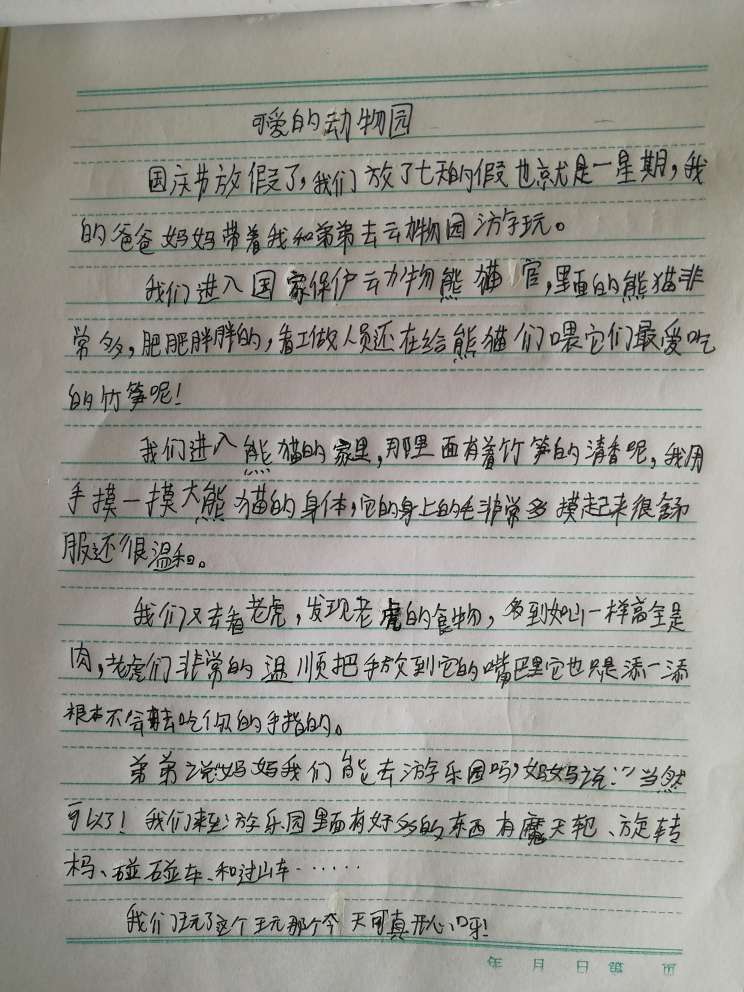 可爱的动物园
国庆节放假了,我们放了七天的假也就是一星期,我
的爸爸妈妈带着我和弟弟去动物园游玩。
我们进入国家保护动物熊猫官,里面的熊猫非
常多,肥肥胖胖的,看工做人员还在给熊猫们喂它们最爱吃
的竹笋呢!
我们进入熊猫的家里,那里面有着竹笋的清香呢,我用
手摸一摸大熊猫的身体,它的身上的毛非常多摸起来很舒
服还很温和。
我们又去看老虎,发现老虎的食物,多到如山一样高全是
肉,老虎们非常的温顺把手放到它的嘴巴里它也只是添一添
根本不会去吃你的手指的。
弟弟说"妈妈我们能去游乐园吗,妈妈说:"当然
可以了!我们来到游乐园里面有好多的东西有魔天轮、旋转
木马、碰碰车、和过山车……
我们玩了这个玩那个今天可真开心呀!
年 月 日 第 页